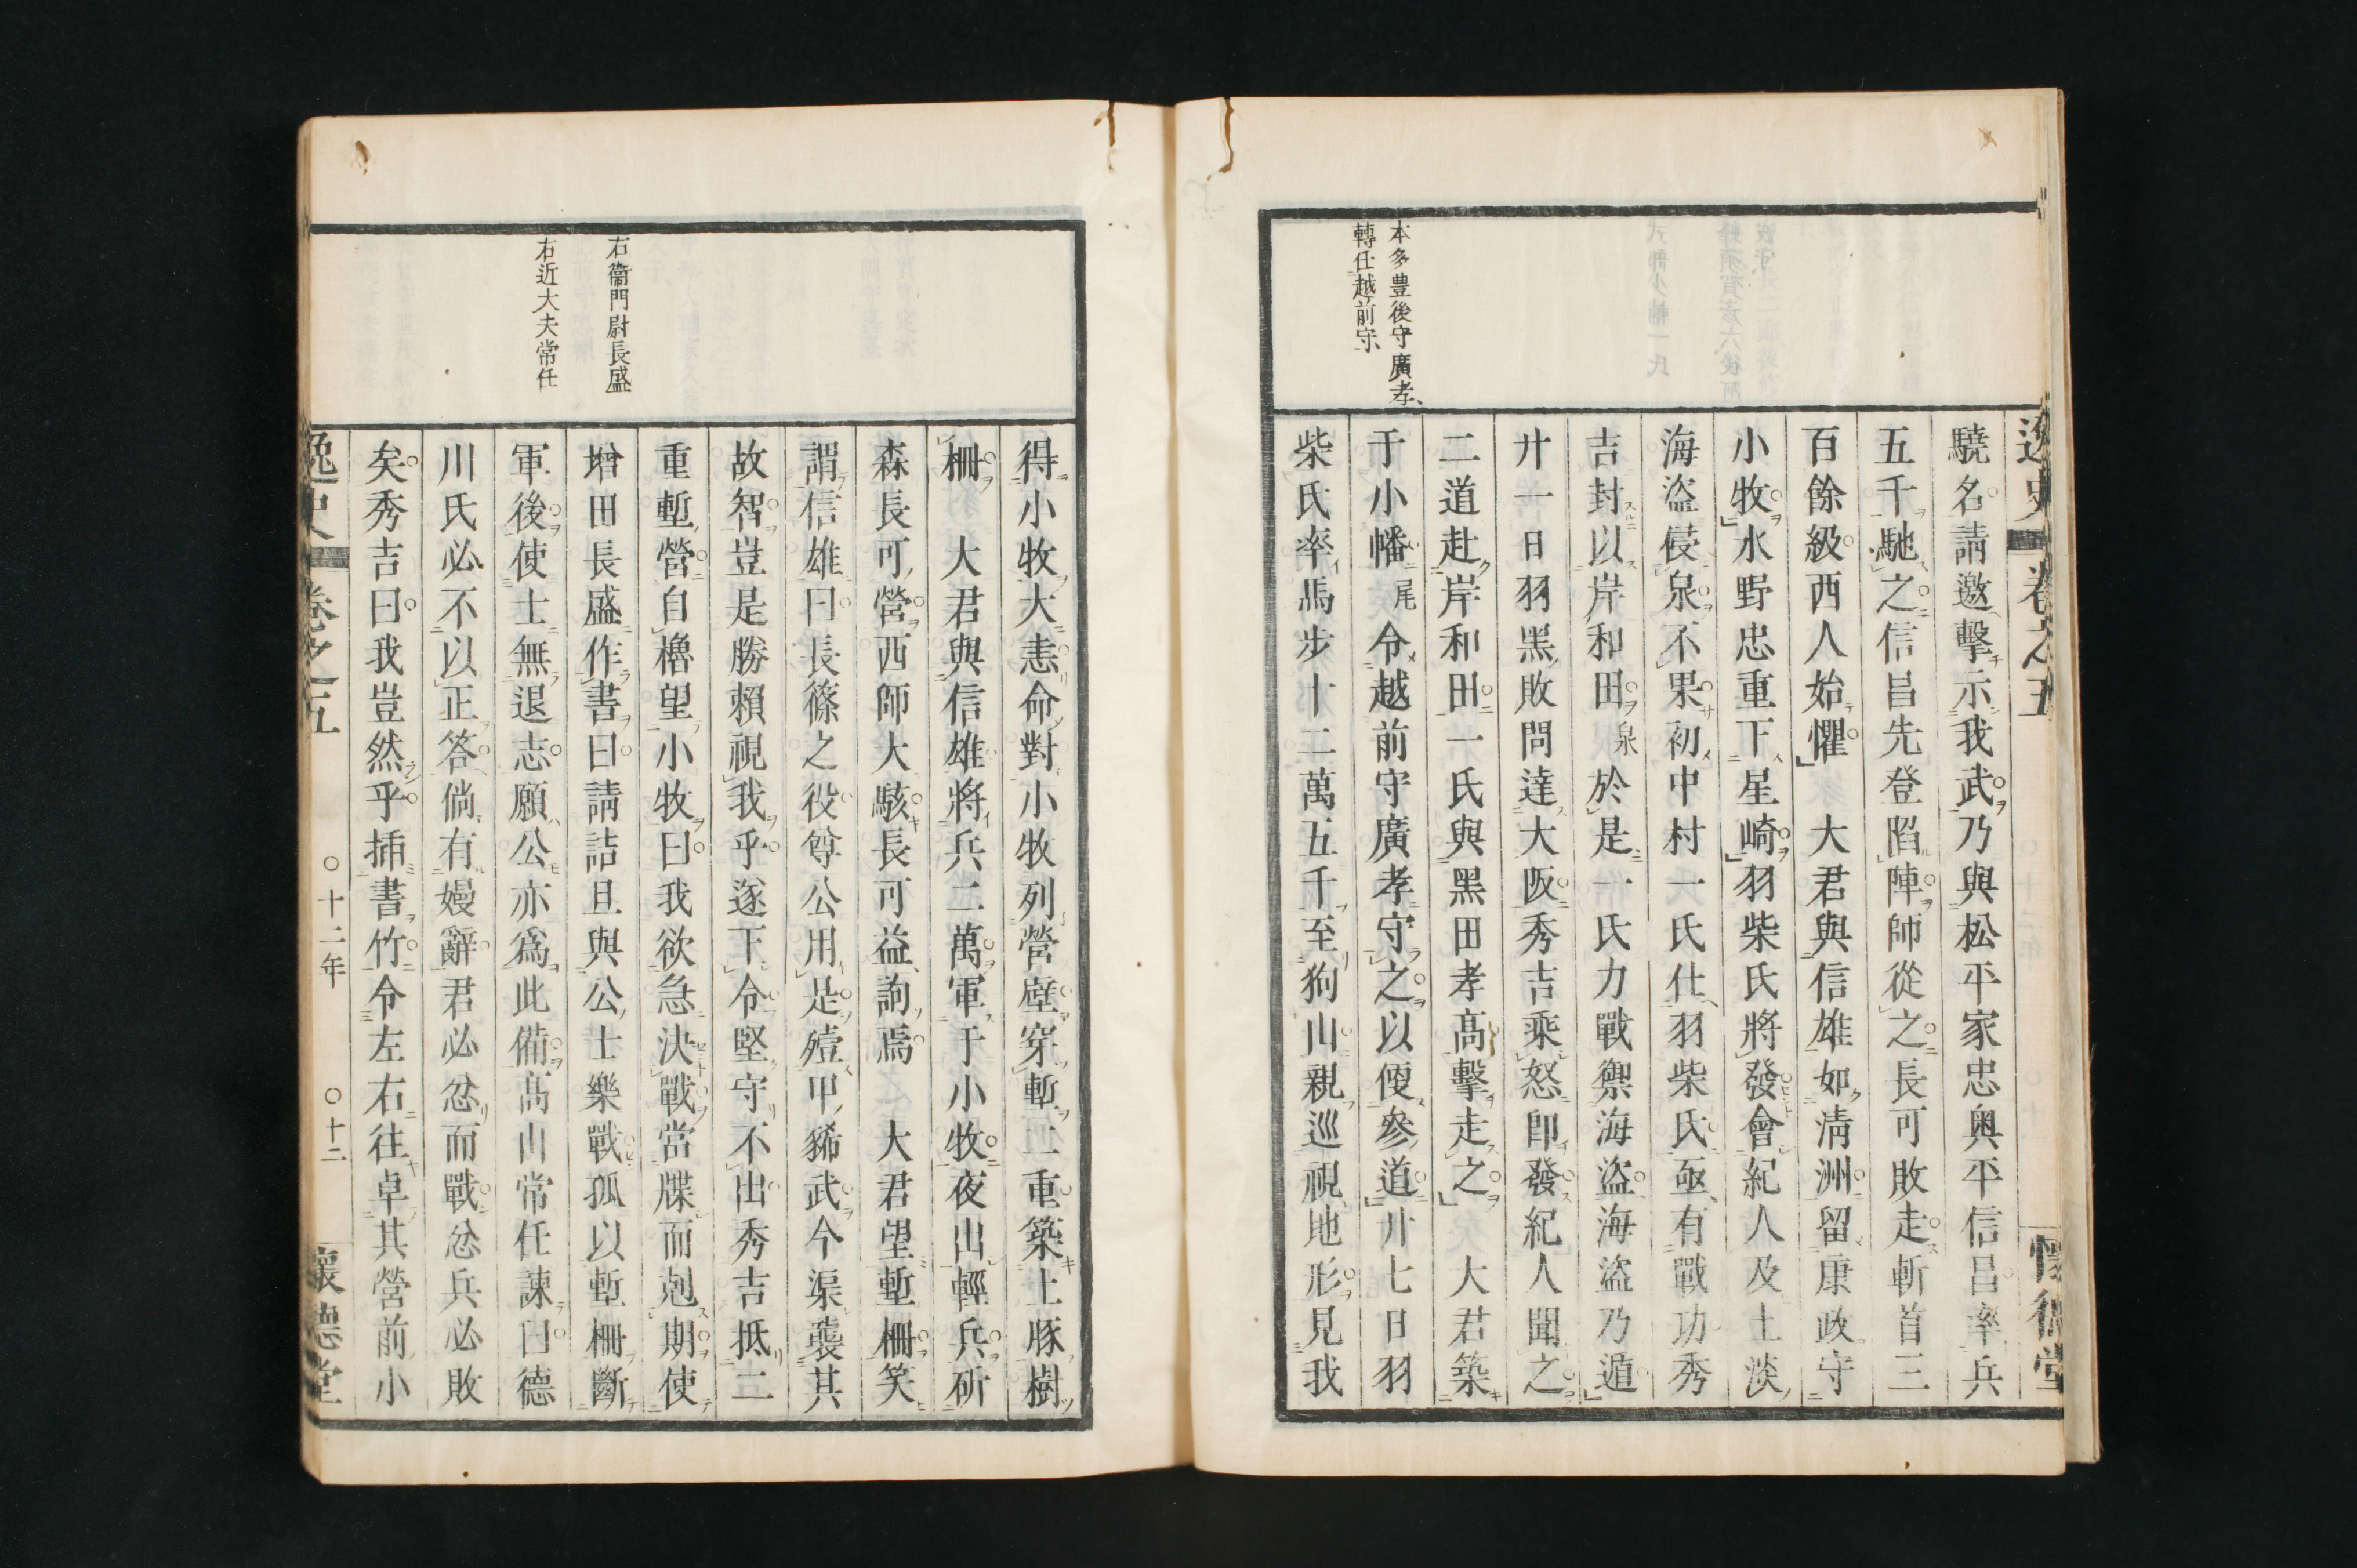 逸史 卷之五 懷德堂
本多豊後守廣孝、
轉任越前守、
驍名請邀擊示我武乃與松平家忠奥平信昌率兵
五千馳之信昌先登陷陣師從之長可敗走斬首三
百餘級西人始懼 大君與信雄如清洲留康政守
小牧水野忠重下星崎羽柴氏將發會紀人及土淡
海盜侵泉不果初中村一氏仕羽柴氏亟有戰功秀
吉封以岸和田泉於是一氏力戰禦海盜海盜乃遁
廾一日羽黑敗問達大阪秀吉乘怒卽發紀人聞之
二道赴岸和田一氏與黑田孝高擊走之 大君築
于小幡尾令越前守廣孝守之以便參道廾七日羽
柴氏率馬步十二萬五千至狗山親巡視地形見我
右衞門尉長盛
右近大夫常任
得小牧大恚命對小牧列營壁穿塹二重築土豚樹
柵 大君與信雄將兵二萬軍于小牧夜出輕兵斫
森長可營西師大駭長可益詾焉 大君望塹柵笑
謂信雄曰長篠之役尊公用是殪甲豨武今渠襲其
故智豈是勝賴視我乎遂下令堅守不出秀吉抵二
重塹營自櫓望小牧曰我欲急決戰當牒而剋期使
增田長盛作書曰請詰旦與公士樂戰孤以塹柵斷
軍後使士無退志願公亦爲此備高山常任諫曰德
川氏必不以正答倘有嫚辭君必忿而戰忿兵必敗
矣秀吉曰我豈然乎插書竹令左右往卓其營前小
逸史 卷之五 ○十二年 ○十二 懷德堂